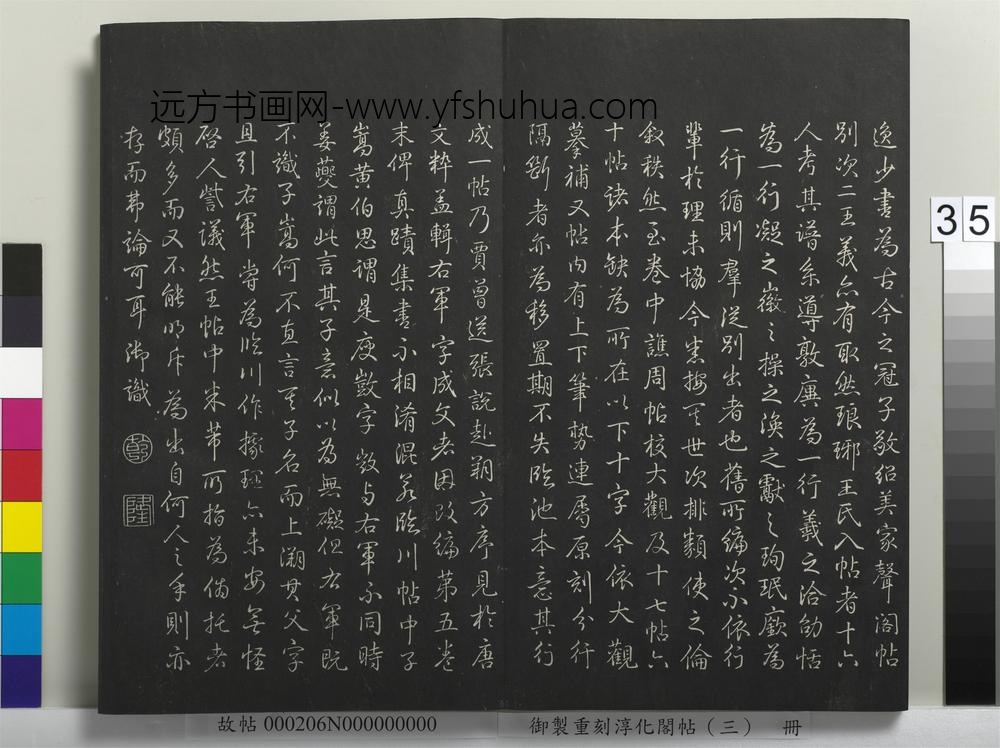 远方书画网-www.yfshuhua.com
逸少書為古今之冠子敬紹美家聲閣帖
別次二王義亦有取然琅琊王氏入帖者十六
人考其譜系導敦廙為一行羲之洽劭恬
為一行凝之徽之操之渙之獻之珣珉廞為
一行循則羣從別出者也舊所編次不依行
輩於理未協今悉按其世次排類使之倫
敘秩然至卷中譙周帖校大觀及十七帖六
十帖諸本缺為所在以下十字今依大觀
摹補又帖內有上下筆勢連屬原刻分行
隔斷者亦為移置期不失臨池本意其行
成一帖乃賈曾送張說赴朔方序見於唐
文粹蓋輯右軍字成文者因改編第五卷
末俾真蹟集書不相淆混若臨川帖中子
嵩黃伯思謂是庾敳字敳与右軍不同時
姜夔謂此言其子意似以為無礙但右軍既
不識子嵩何不直言其子名而上溯其父字
且引右軍嘗為臨川作據理亦未安無怪
啓人訾議然王帖中米芾所指為偽托者
頗多而又不能明斥為出自何人之手則亦
存而弗論可耳御識
乾
隆
35
故帖 000206N000000000
御製重刻淳化閣帖（三） 冊